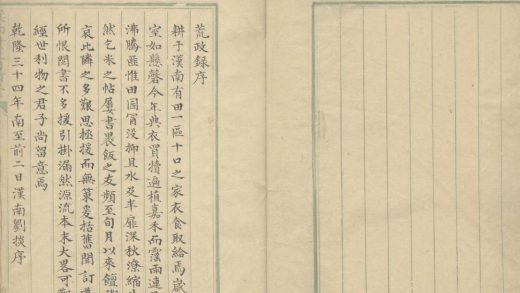 荒政録序
耕于漢南有田一區十口之家衣食取給焉歲
室如懸罄今年典衣買犢適植嘉禾而霪雨連
沸騰匪惟田園胥没抑且水及半扉深秋潦縮
然乞米之帖屢書畏飯之友頻至旬月以來饘
哀比隣之多艱思拯援而無策爰括舊聞訂
所恨閱書不多援引掛漏然源流本末大畧可
經世利物之君子尚留意焉
乾隆三十四年南至前二日漢南劉掞序